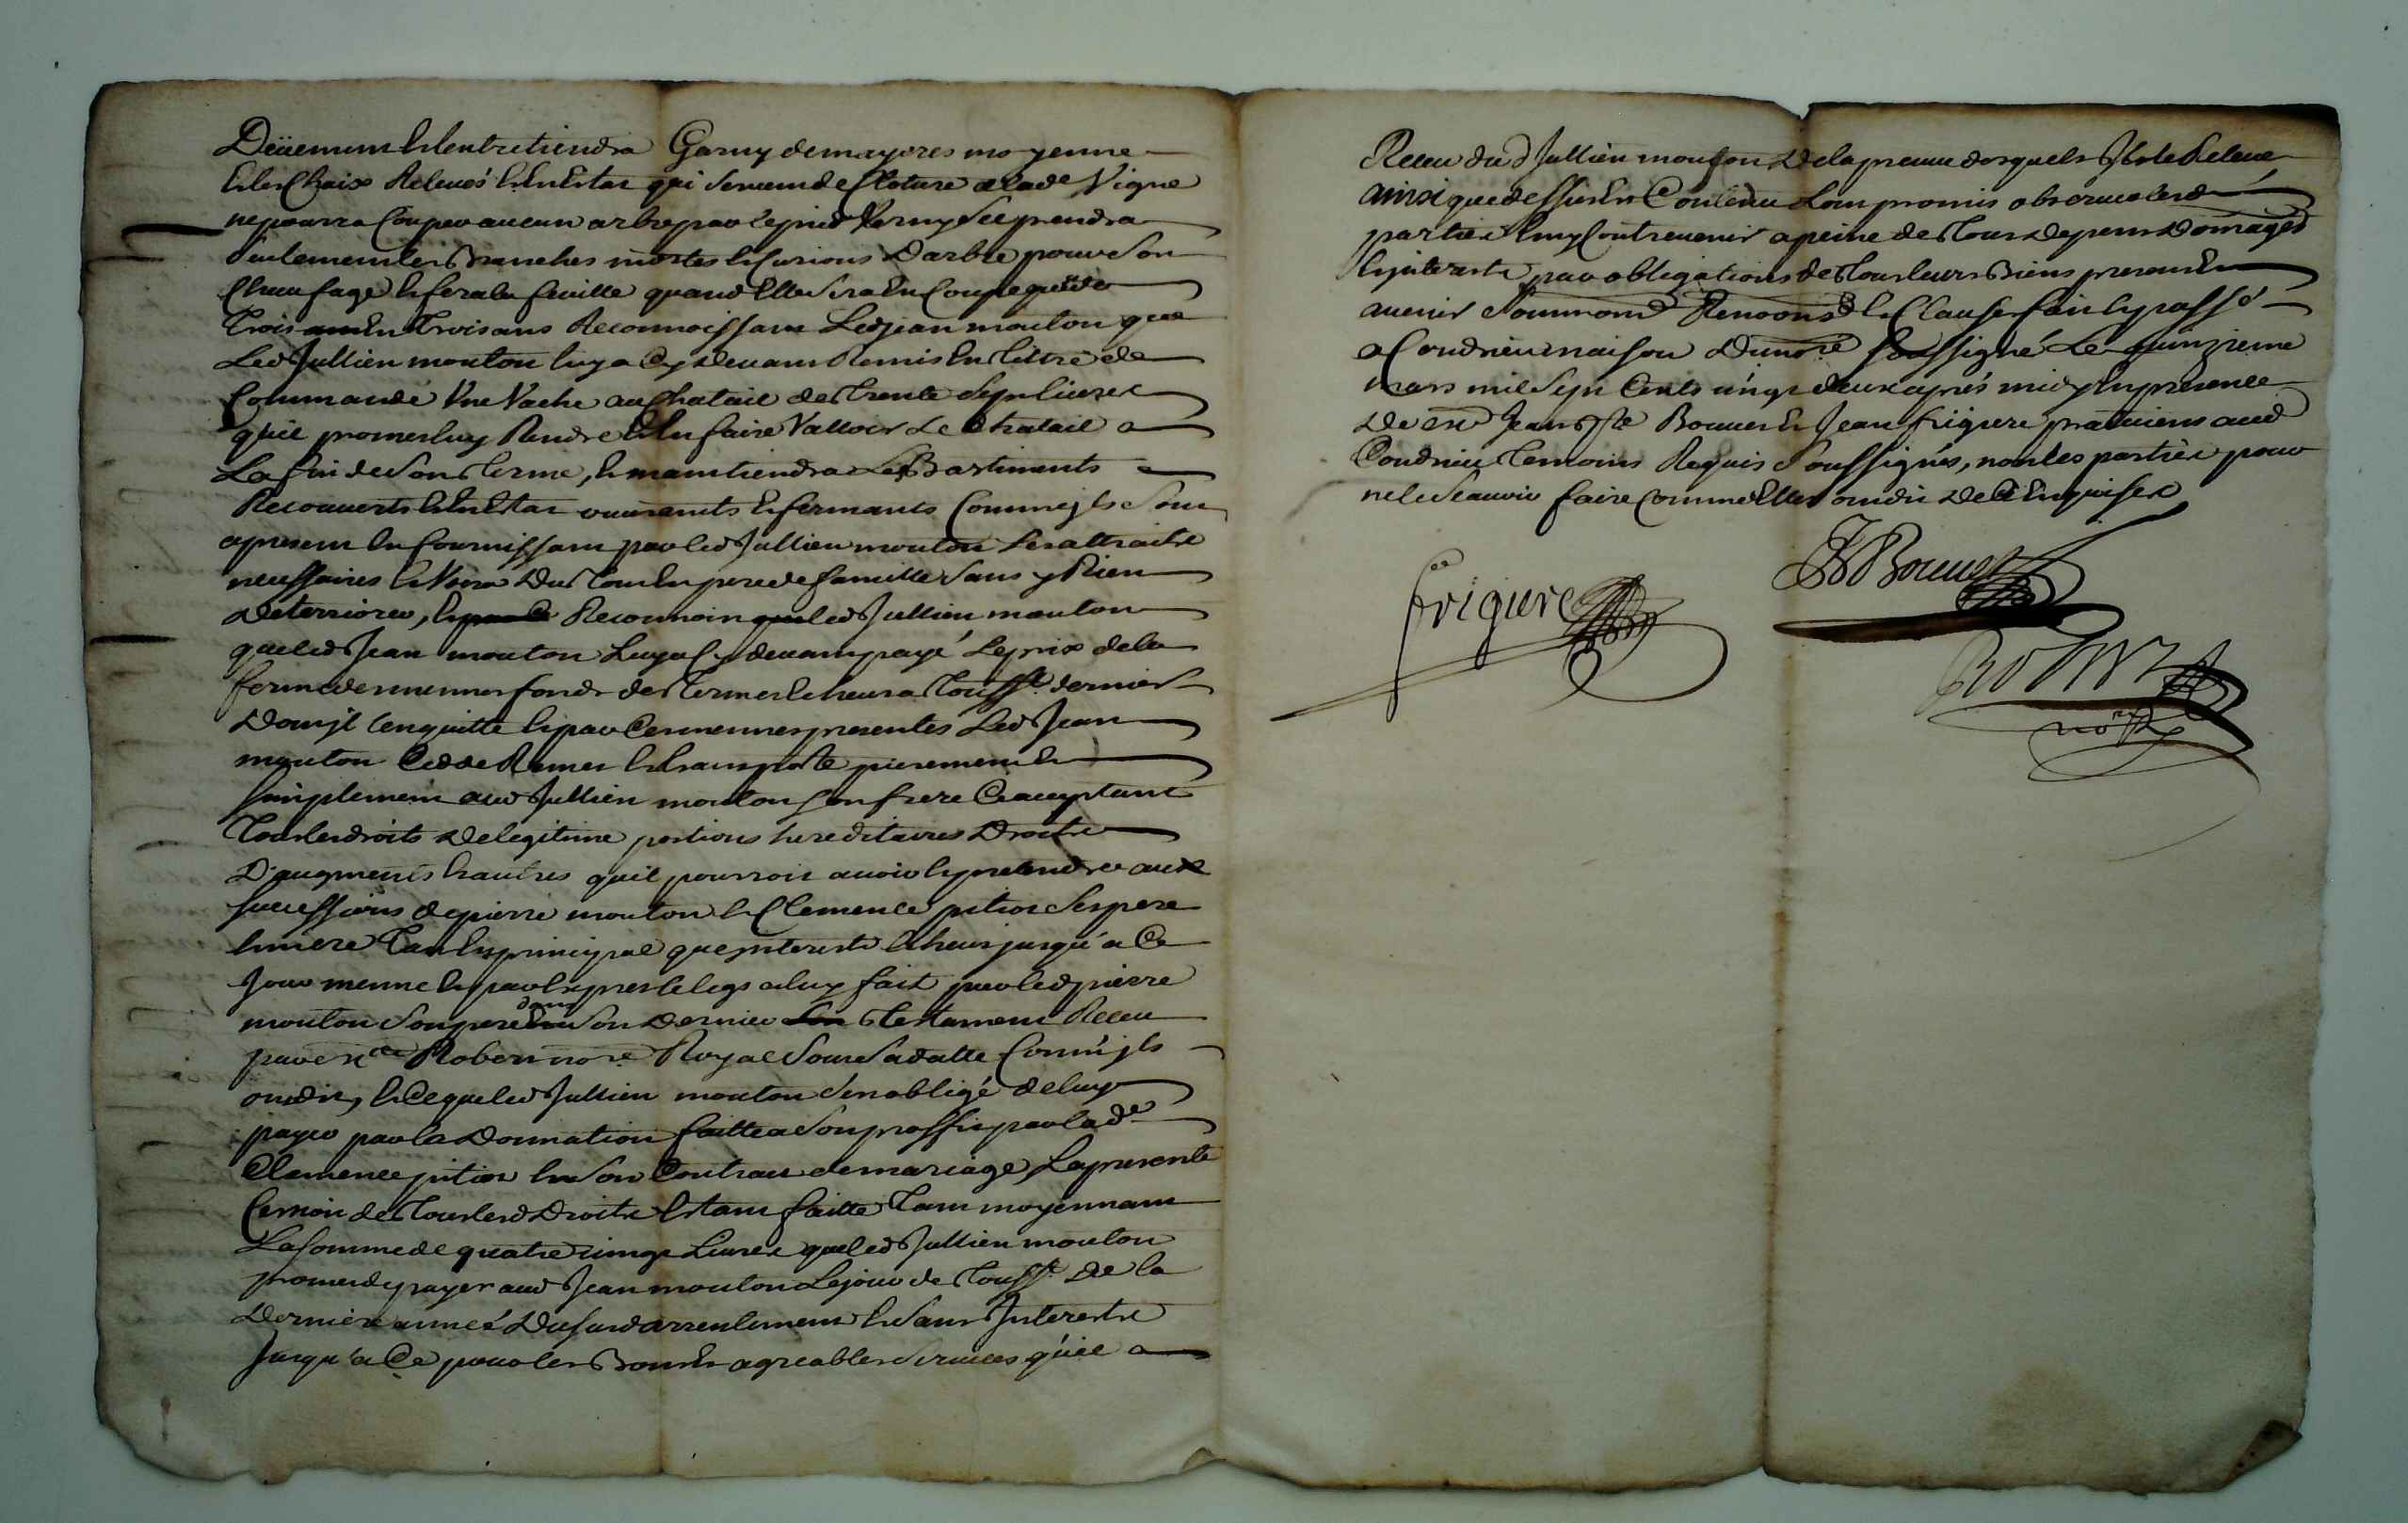 Deüement et entretiendra Garny de mayeres moyenne
et les Chaix Relevés et en Estat qui servent de Cloture a lad.e Vigne
ne pourra Couper aucun arbre par le pied Verny See prendra
Seulement les Branches mortes et Darbre pour Son
Chaufage et fera la feuille quand Elle Sera En Coupe
Trois En Trois ans Reconnoissant Led Jean mouton que
Led Jullien mouton luy a Cy devant Remis En tittre de
Commande Une Vache au Chatail de Trente Sept livres
quil promet luy Rendre Et En faire Valloir Le Chatail a
La fin de Son Terme, et maintiendra Les Bastiments
Recouverts et En Estat ouvrants et fermants Comme jls Sont
apresent En fournissant par led Jullien mouton Les attraits
necessaires et Du Tout En pere de famille Sans y Rien
Deteriorer, et Reconnoit led Jullien mouton
que led Jean mouton Luy a Cy devant payé Le prix de la
ferme des mesmes fonds des Termes Echeus a Touss.t dernier
Dont jl Lenquitte et par Ces mesmes presentes Led Jean
mouton Cedde Remet et transporte purement et
Simplement aud Jullien mouton Son frere Ce acceptant
Tous les droits De legitime portions hereditaires Droits
D'augments et autres quil pourroit avoir et pretendre aux
successions de pierre mouton et Clemence pitiot Ses pere
et mere Tant En principal que jnterests Echeus jusqu'a Ce
Jour mesme et par Exprès le legs a luy fait par led pierre
mouton Son pere dans Son Dernier Testament Receu
par me Robert no.re Royal Sous Sa datte Comm'jls
ont dit, et Ce que led Jullien mouton S'en obligé de luy
payer par la Donnation faitte a Son proffit par lad.e
Clemence pitiot En Son Contrat de mariage, La presente
Cession de Tous lesd Droits Estant faitte Tant moyennant
La Somme de quatre vingt Livres que led Jullien mouton
promet de payer aud Jean mouton Le jour de Touss.t De la
Derniere année Dususd arrentement et Sans Interests
Jusqu'a Ce pour les Bons Et agreables Services qu'il a
Receu du d Jullien mouton De la preuve desquels Jl le Releve
ainsi que dessus Est Contenu L'ont promis observer lesd
parties et n'y Contrevenir a peine de Tous Depens Domages
Et jnterests par obligations de Tous leurs Biens presents Et
avenir Soumons Renoons et Clauses fait et passé
a Condrieu maison Du no.re Soussigné Le quinzieme
mars mil Sept Cents vingt deux après midy En presence
De Jean Bte Bonnet Et Jean frigiere praticiens aud
Condrieu Temoins Requis Soussignés, non les parties pour
ne le Scavoir faire Comme Elles ont dit De Ce Enquises
frigiere
JB Bonnet
Robert
no.re